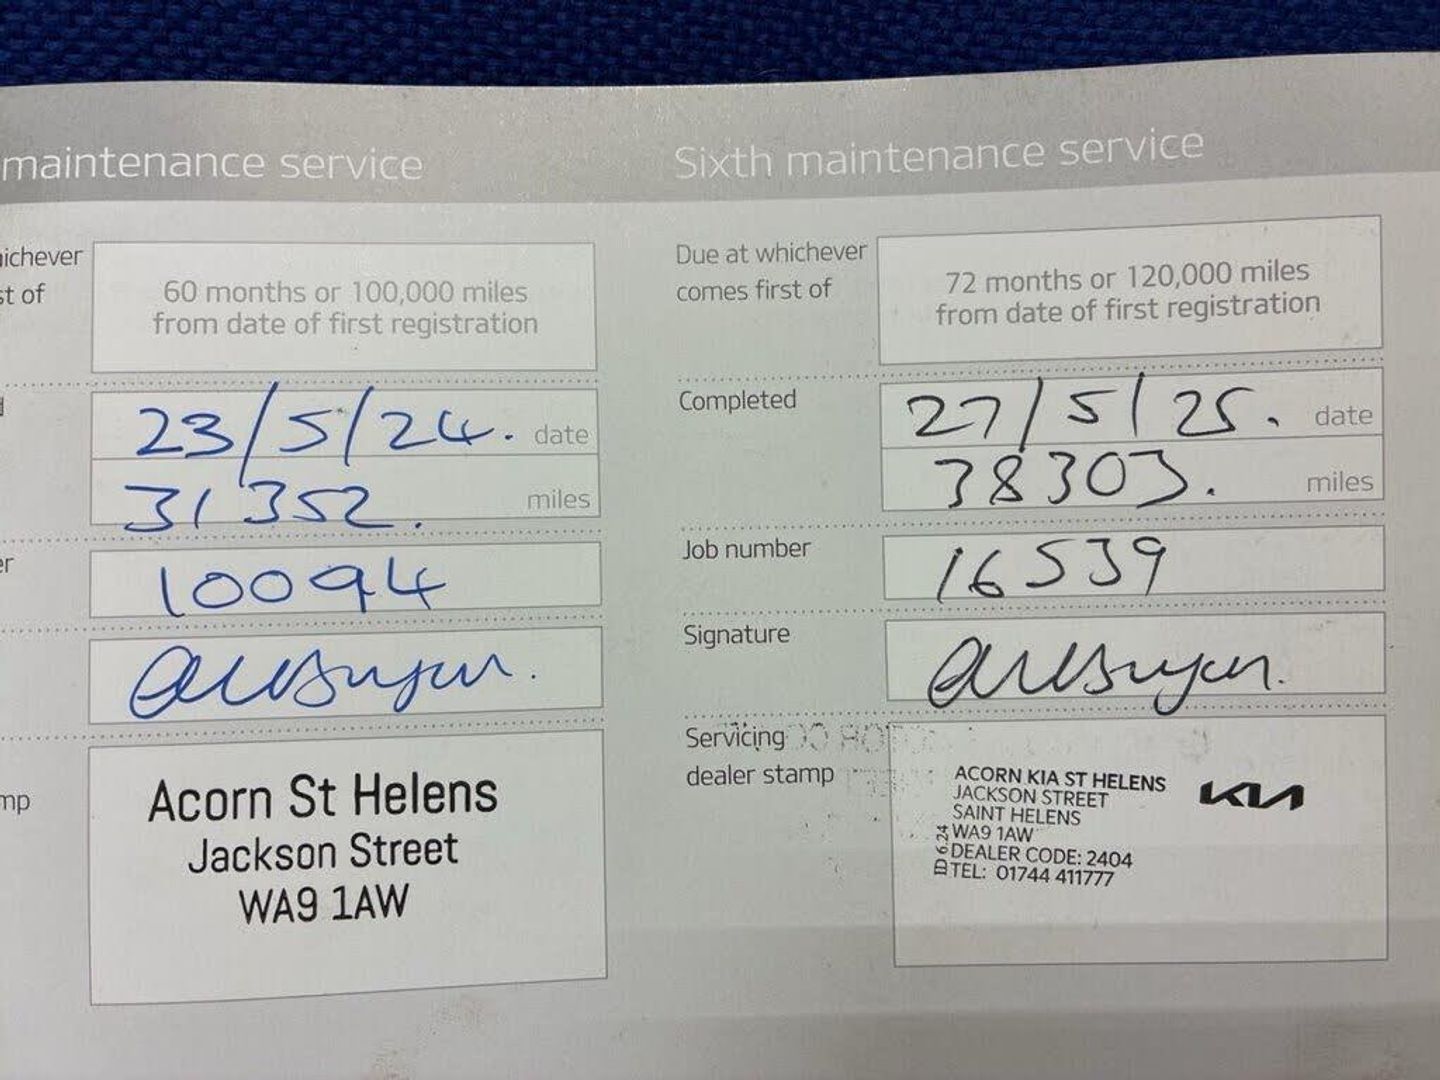 maintenance service
hichever
st of
60 months or 100,000 miles
from date of first registration
23/5/24. date
31352. miles
er
10094
mp
Acorn St Helens
Jackson Street
WA9 1AW
Sixth maintenance service
Due at whichever
comes first of
72 months or 120,000 miles
from date of first registration
Completed
27/5/25. date
38303. miles
Job number
16539
Signature
Servicing
dealer stamp
ACORN KIA ST HELENS
JACKSON STREET
SAINT HELENS
WA9 1AW
DEALER CODE: 2404
TEL: 01744 411777
KIA